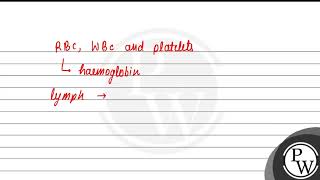 RBc, WBc and platelets
↳ haemoglobin
lymph →
PW
PW